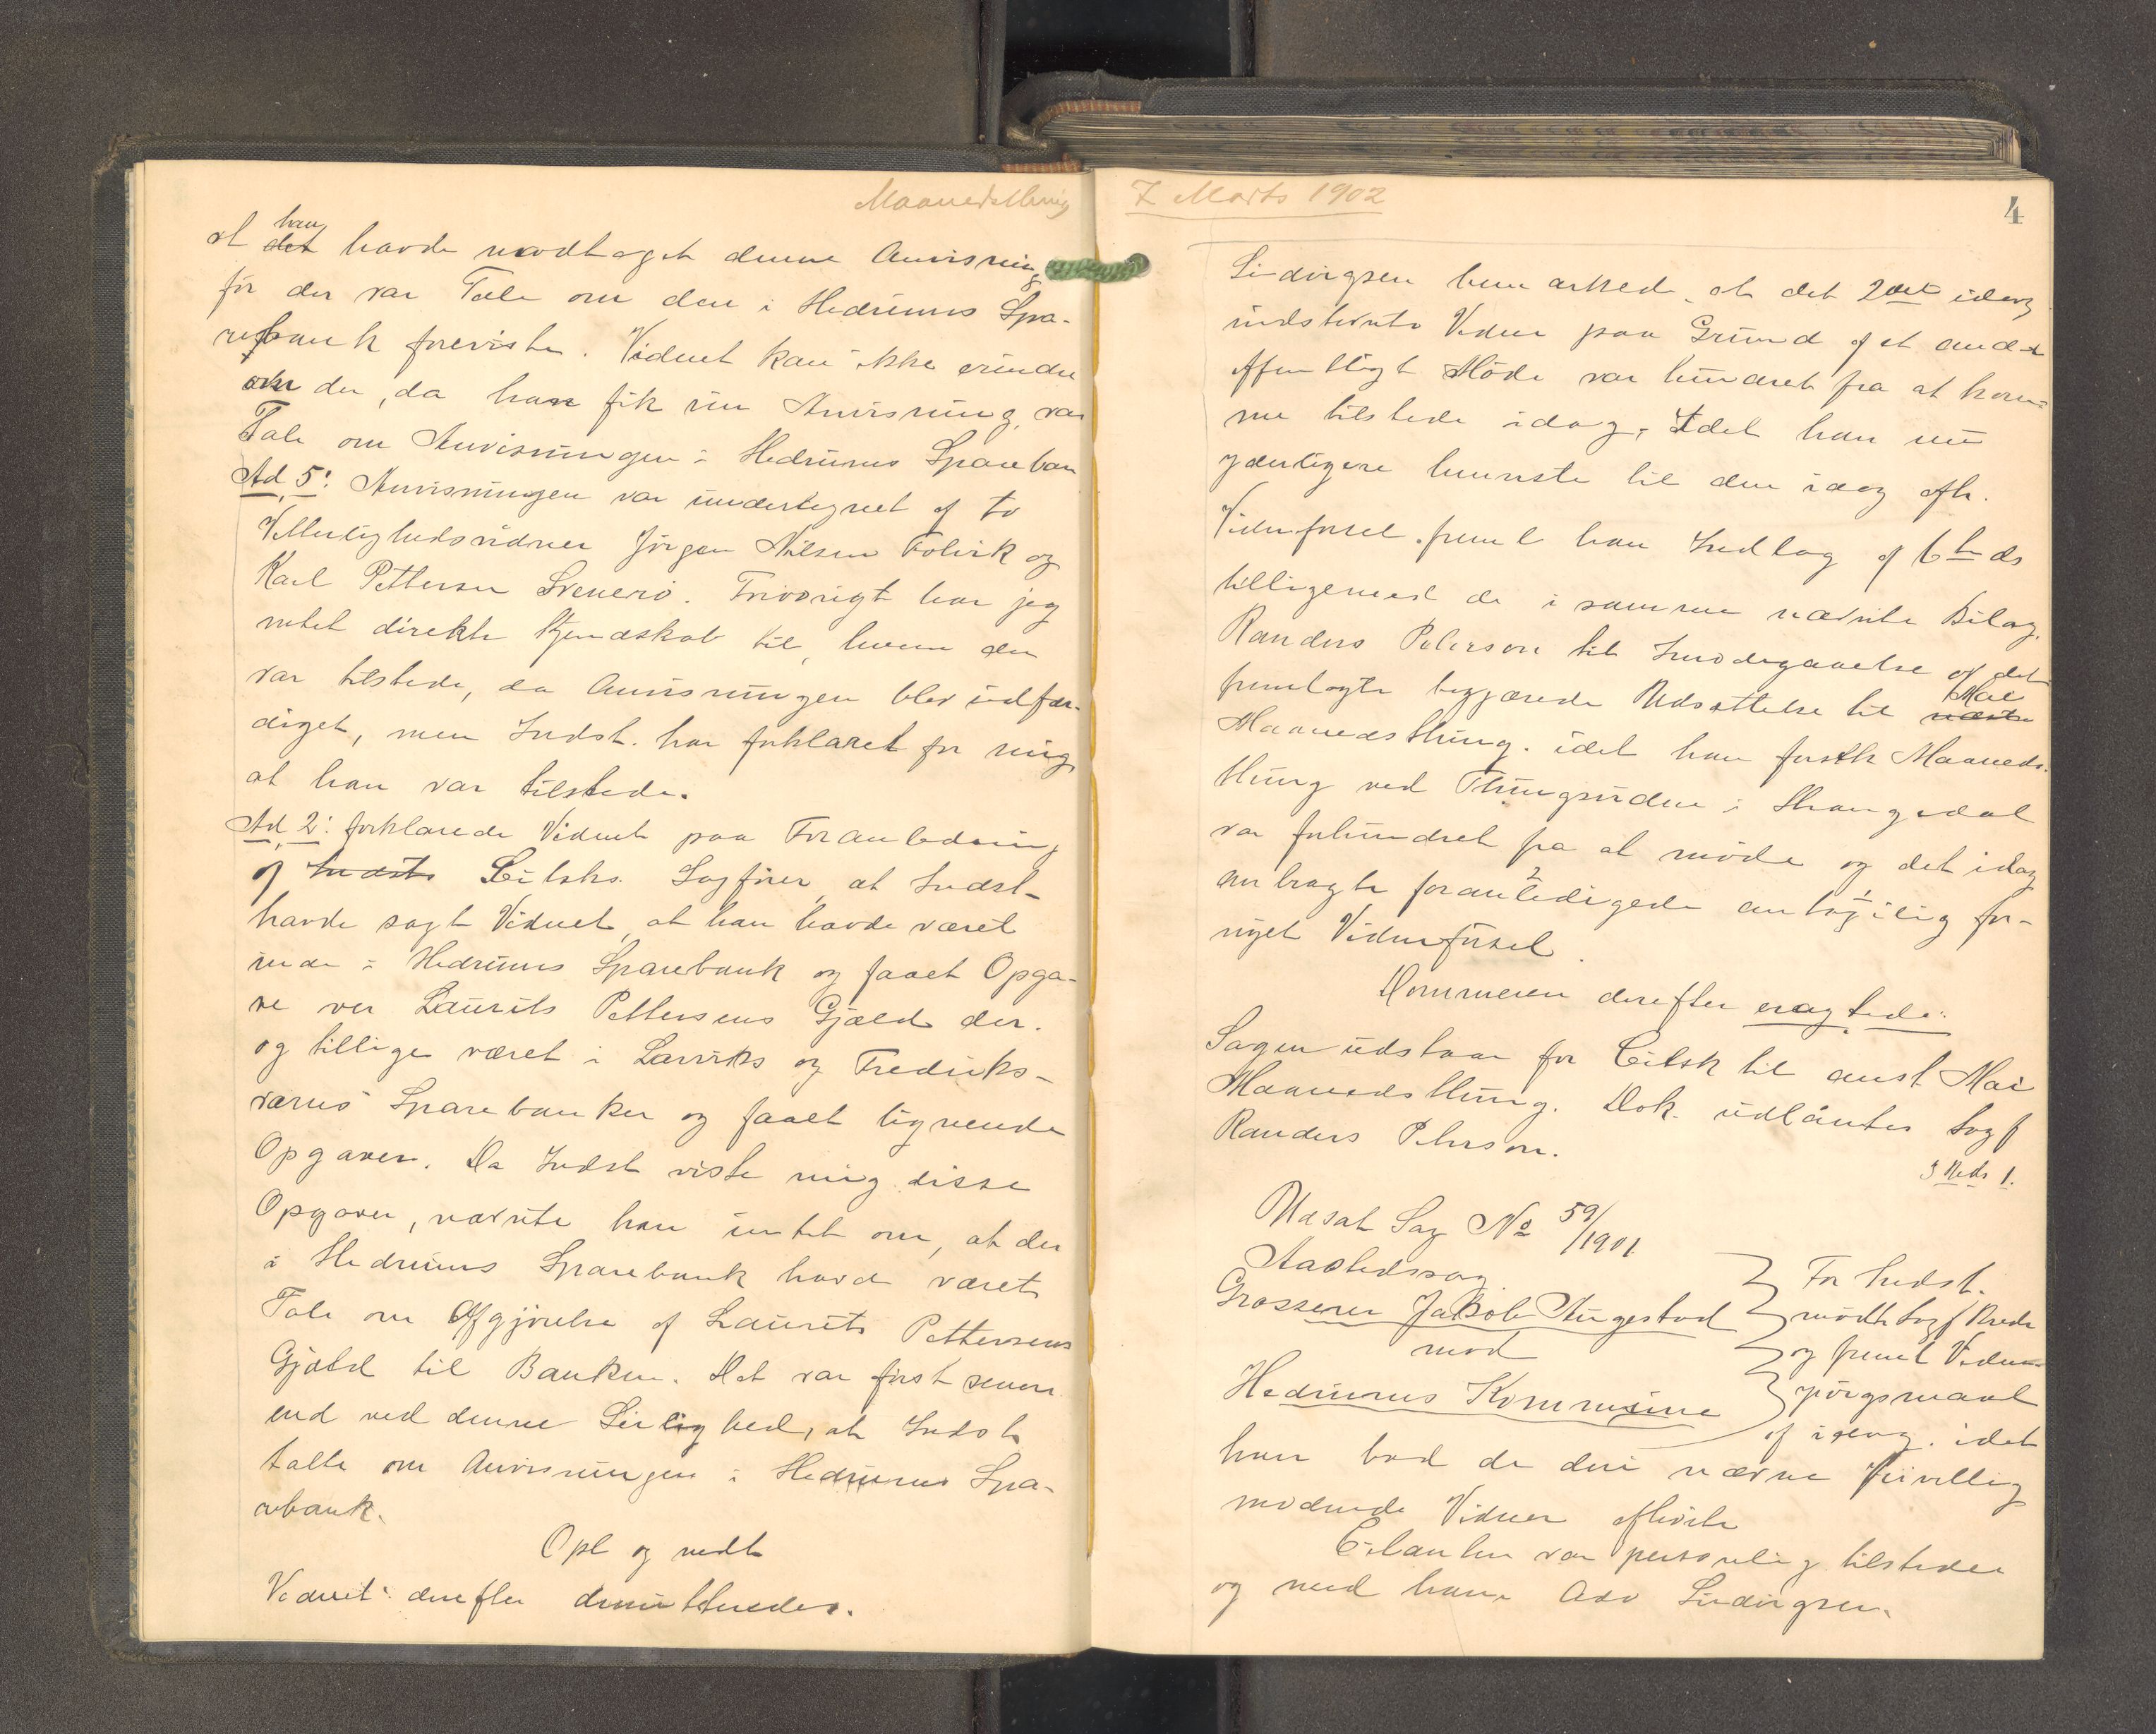 Maanedsthing
at han havde modtaget denne Anvisning
før der var Tale om den i Hedrums Spa-
rebank foreviste. Vidnet kan ikke erindre
om der, da han fik sin Anvisning, var
Tale om Anvisningen i Hedrums Spareban
Ad 5: Anvisningen var undertegnet af to
Vitterlighedsvidner Jørgen Nilsen Folvik og
Karl Pettersen Svenerø. Forøvrigt har jeg
intet direkte Kjendskab til, hvem der
var tilstede, da Anvisningen blev udfær-
diget, men Indst. har forklaret for mig,
at han var tilstede.
Ad 2: forklarede Vidnet paa Foranledning
af Indsts Citstes Sagfører, at Indst-
havde sagt Vidnet, at han havde været
inde i Hedrums Sparebank og faaet Opga-
ve over Laurits Pettersens Gjæld der.
og tillige været i Larviks og Fredriks-
værns Sparebanker og faaet lignende
Opgaver. Da Indst viste mig disse
Opgaver, nævnte han intet om, at der
i Hedrums Sparebank havde været
Tale om Afgjørelse af Laurits Pettersens
Gjæld til Banken. Det var først senere
end ved denne Leilighed, at Indst
talte om Anvisningen i Hedrums Spa-
rebank.
Opl og vedt
Vidnet derefter dimitteredes.
7 Marts 1902
4
Lindvigsen bemærkede, at det 2det idag
indstevnte Vidne paa Grund af et andet
offentligt Møde var hindret fra at kom-
me tilstede idag. Idet han nu
yderligere henviste til den idag afh.
Vidneførsel freml han Indlæg af 6te ds
tilligemed de i samme nævnte Bilag.
Randers Pehrson til Imødegaaelse af det
fremlagte begjærede Udsættelse til næste Mai
Maanedsthing. idet han første Maaneds-
thing ved Thingsiden i
var forhindret fra at møde og det idag
anbragte foranledigede antagelig for-
nyet Vidneførsel.
Dommeren derefter eragtede:
Sagen udstaar for Citsk til anst Mai
Maanedsthing. Dok. udlaantes Sagf
Randers Pehrson.
3 Reds 1.
Udsat Sag No 59/1901
Aastedssag
Grosserer Jakob Augestad
mod
Hedrums Kommune
For Indst.
mødte Sagf Brede
og freml Vidne-
spørgsmaal
af idag. idet
han bad de deri nævne frivillig
mødende Vidner afhørte
Citanten var personlig tilstede
og med ham Adv Lindvigsen.